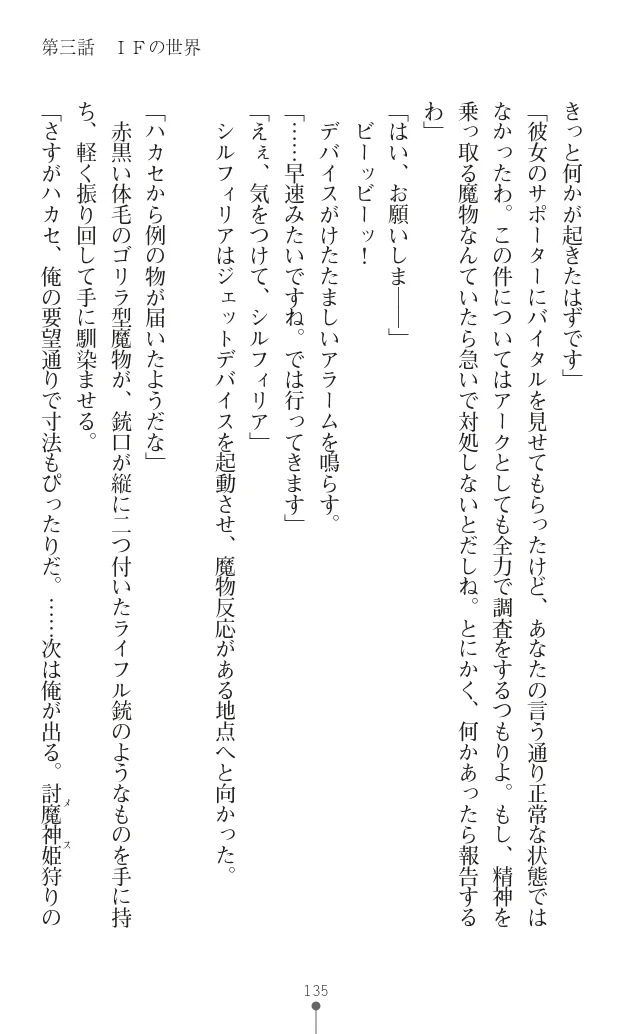 第三話　ＩＦの世界
きっと何かが起きたはずです」
「彼女のサポーターにバイタルを見せてもらったけど、あなたの言う通り正常な状態では
なかったわ。この件についてはアークとしても全力で調査をするつもりよ。もし、精神を
乗っ取る魔物なんていたら急いで対処しないとだしね。とにかく、何かあったら報告する
わ」
「はい、お願いしま――」
ビーッビーッ！
デバイスがけたたましいアラームを鳴らす。
「……早速みたいですね。では行ってきます」
「えぇ、気をつけて、シルフィリア」
シルフィリアはジェットデバイスを起動させ、魔物反応がある地点へと向かった。
「ハカセから例の物が届いたようだな」
赤黒い体毛のゴリラ型魔物が、銃口が縦に二つ付いたライフル銃のようなものを手に持
ち、軽く振り回して手に馴染ませる。
「さすがハカセ、俺の要望通りで寸法もぴったりだ。……次は俺が出る。討魔神姫狩りの
メス
135